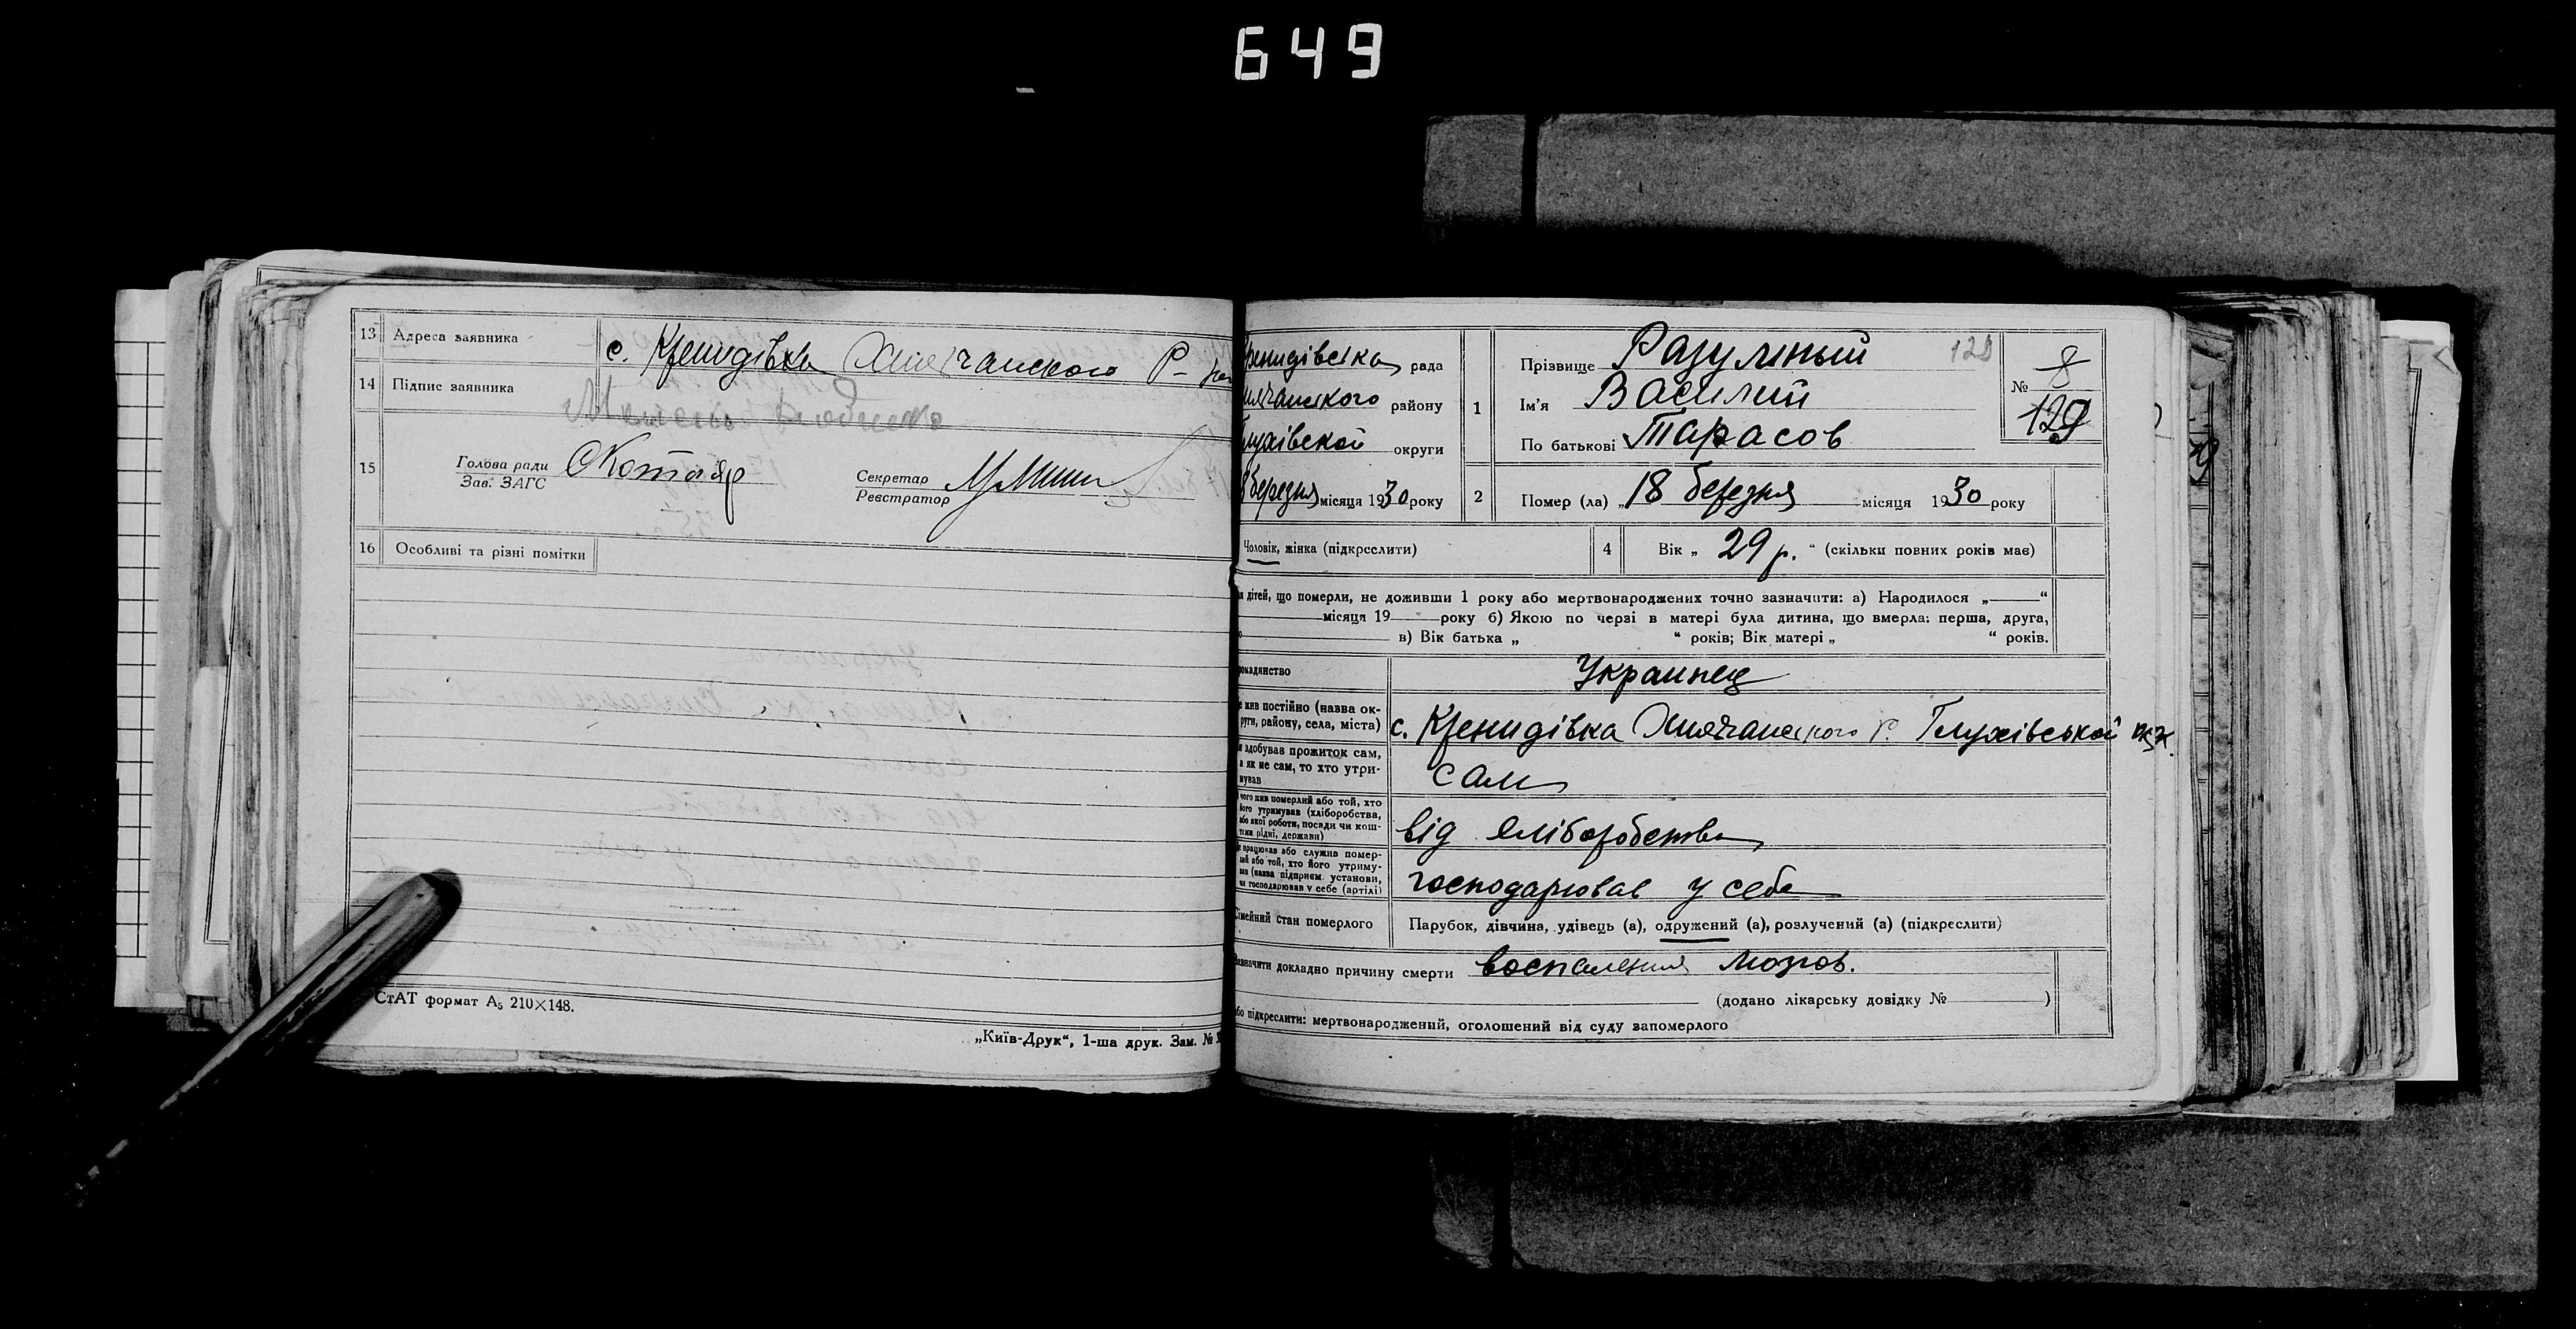 649
13 Адреса заявника с. Кренидівка Хильчанского Р-
14 Підпис заявника
15 Голова ради Зав. ЗАГС Котляр Секретар Реєстратор
16 Особливі та різні помітки
СтАТ формат А₅ 210×148.
„Київ-Друк“, 1-ша друк. Зам. №
ренидівська рада
району
лухівской округи
березня місяця 1930 року
1 Прізвище Разумный 129
Ім'я Василий
По батькові Тарасов
№ 8
129
2 Помер (ла) „18 березня місяця 1930 року
Чоловік, жінка (підкреслити)
4 Вік „ 29 р. “ (скільки повних років має)
дітей, що померли, не доживши 1 року або мертвонароджених точно зазначити: а) Народилося „ “
місяця 19 року б) Якою по черзі в матері була дитина, що вмерла: перша, друга,
в) Вік батька „ “ років; Вік матері „ “ років.
омадянство Украинец
жив постійно (назва ок-
руги, району, села, міста) с. Кренидівка Хильчанского р. Глухівської окр.
здобував прожиток сам,
а як не сам, то хто утри-
мував сам
чого жив померлий або той, хто
його утримував (хліборобства,
або якої роботи, посади чи кош-
тами рідні, держави) від хліборобства
працював або служив помер-
лий або той, хто його утриму-
вав (назва підприєм. установи,
чи господарював у себе (артілі) господарював у себе
Сімейний стан померлого Парубок, дівчина, удівець (а), одружений (а), розлучений (а) (підкреслити)
Зазначити докладно причину смерти воспаления мозгов.
(додано лікарську довідку № )
або підкреслити: мертвонароджений, оголошений від суду запомерлого